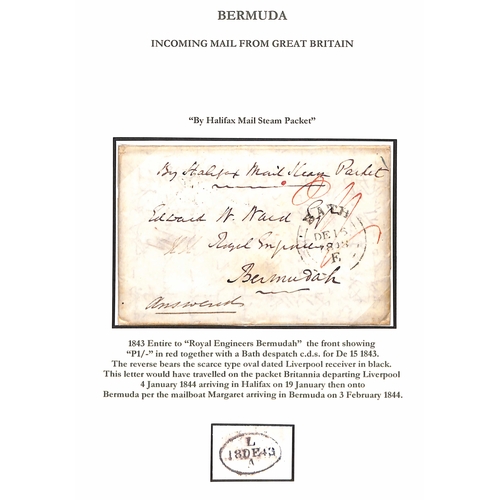 BERMUDA
INCOMING MAIL FROM GREAT BRITAIN
"By Halifax Mail Steam Packet"
By Halifax Mail Steam Packet
Edward W. Ward Esq
Royal Engineers
Bermudah
Answered
BATH
DE 15
1843
E
1843 Entire to "Royal Engineers Bermudah" the front showing
"P1/-" in red together with a Bath despatch c.d.s. for De 15 1843.
The reverse bears the scarce type oval dated Liverpool receiver in black.
This letter would have travelled on the packet Britannia departing Liverpool
4 January 1844 arriving in Halifax on 19 January then onto
Bermuda per the mailboat Margaret arriving in Bermuda on 3 February 1844.
L
18DE43
A